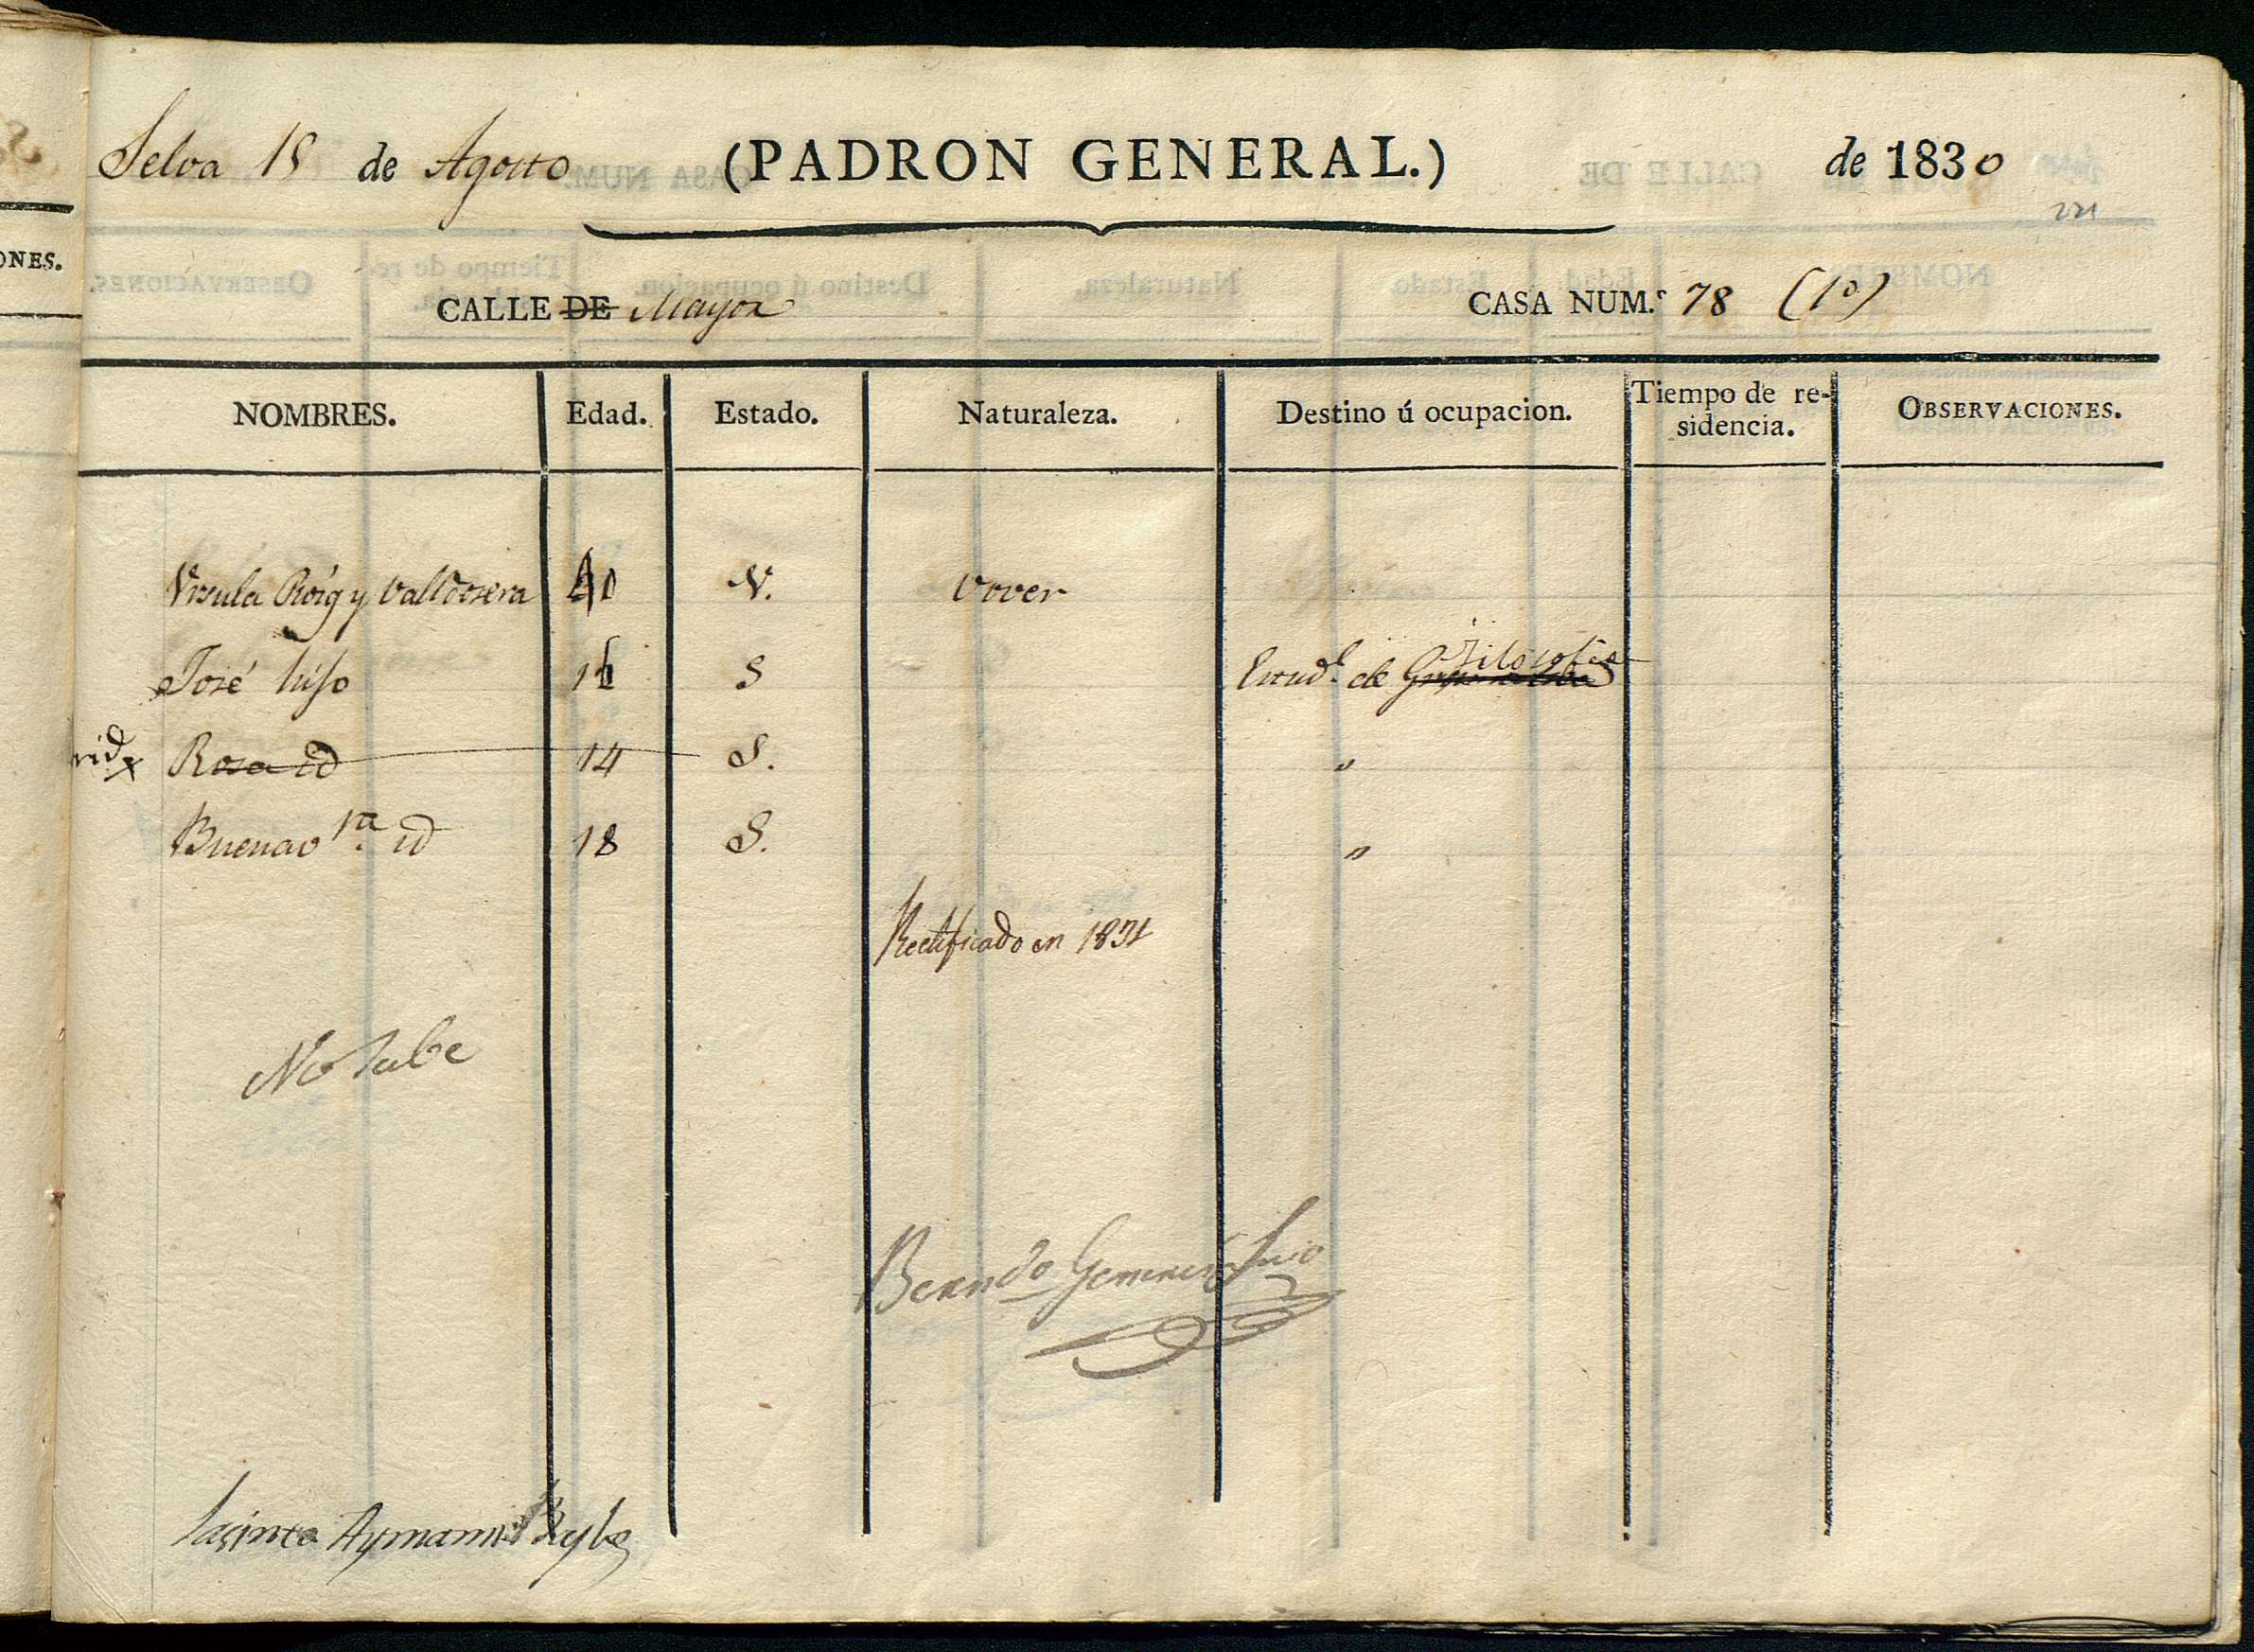 Selva 15 de Agosto (PADRON GENERAL.) de 1830
221
ONES.
CALLE DE Mayor CASA NUM.º 78 (1º)
NOMBRES. Edad. Estado. Naturaleza. Destino ú ocupacion. Tiempo de re-sidencia. OBSERVACIONES.
Vrsula Róig y Valldosera V. Vover
José hijo 16 S Estud.e de Filosofia
rid x Rosa id 14 S. "
Buenav.ra id 18 S. "
Rectificado en 1831
No sabe
Bern.do
Jacinto Aymamí